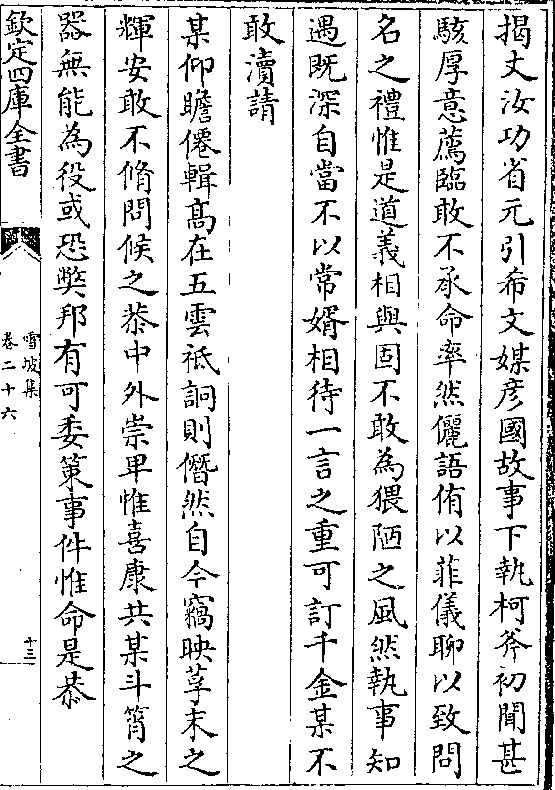 揭丈汝功省元引希文媒彦國故事下執柯斧初聞甚
駭厚意薦臨敢不承命率然儷語侑以菲儀聊以致問
名之禮惟是道義相與固不敢為猥陋之風然執事知
遇既深自當不以常婿相待一言之重可訂千金某不
敢瀆請
某仰瞻僊輯髙在五雲祗詗則僭然自今竊映莩末之
輝安敢不脩問候之恭中外崇卑惟喜康共某斗筲之
器無能為役或恐弊邦有可委策事件惟命是恭
欽定四庫全書
雪坡集
卷二十六
十三